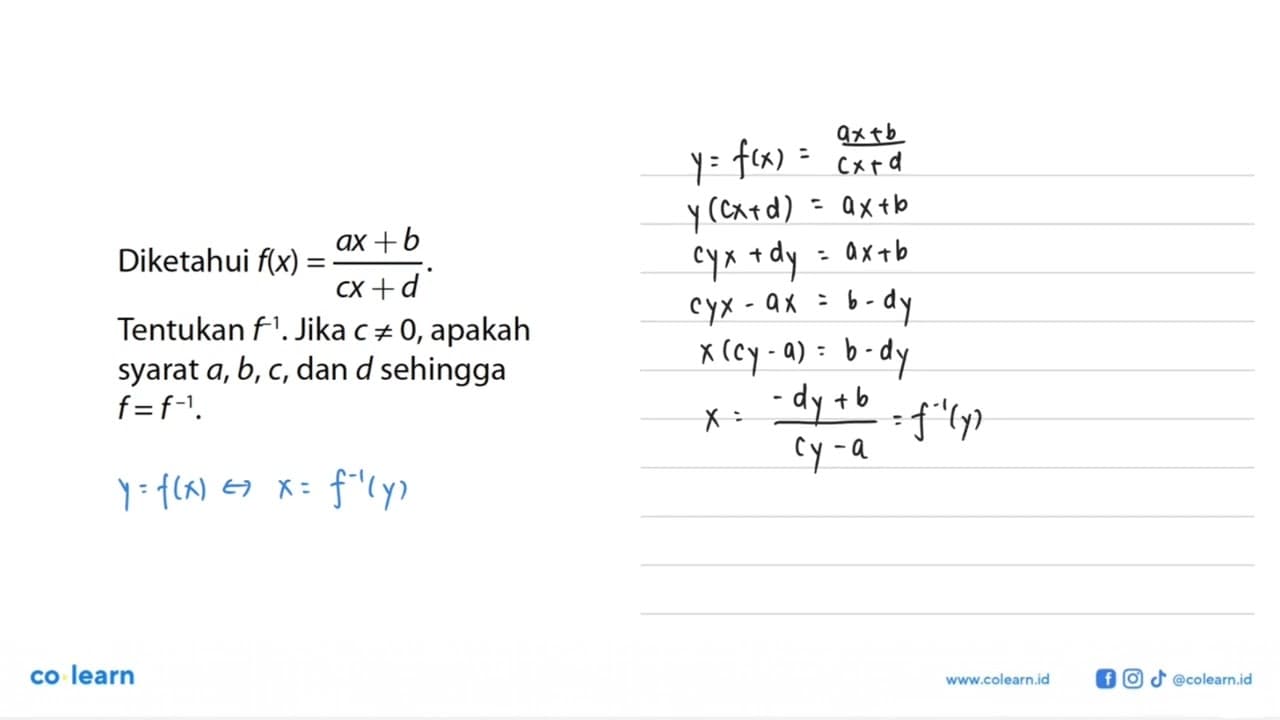 Diketahui f(x) = \frac{ax + b}{cx + d}.
Tentukan f^{-1}. Jika c ≠ 0, apakah
syarat a, b, c, dan d sehingga
f = f^{-1}.
y = f(x) ⇔ x = f^{-1}(y)
y = f(x) = \frac{ax+b}{cx+d}
y(cx+d) = ax+b
cyx + dy = ax+b
cyx - ax = b - dy
x(cy - a) = b - dy
x = \frac{-dy + b}{cy - a} = f^{-1}(y)
co·learn
www.colearn.id
@colearn.id